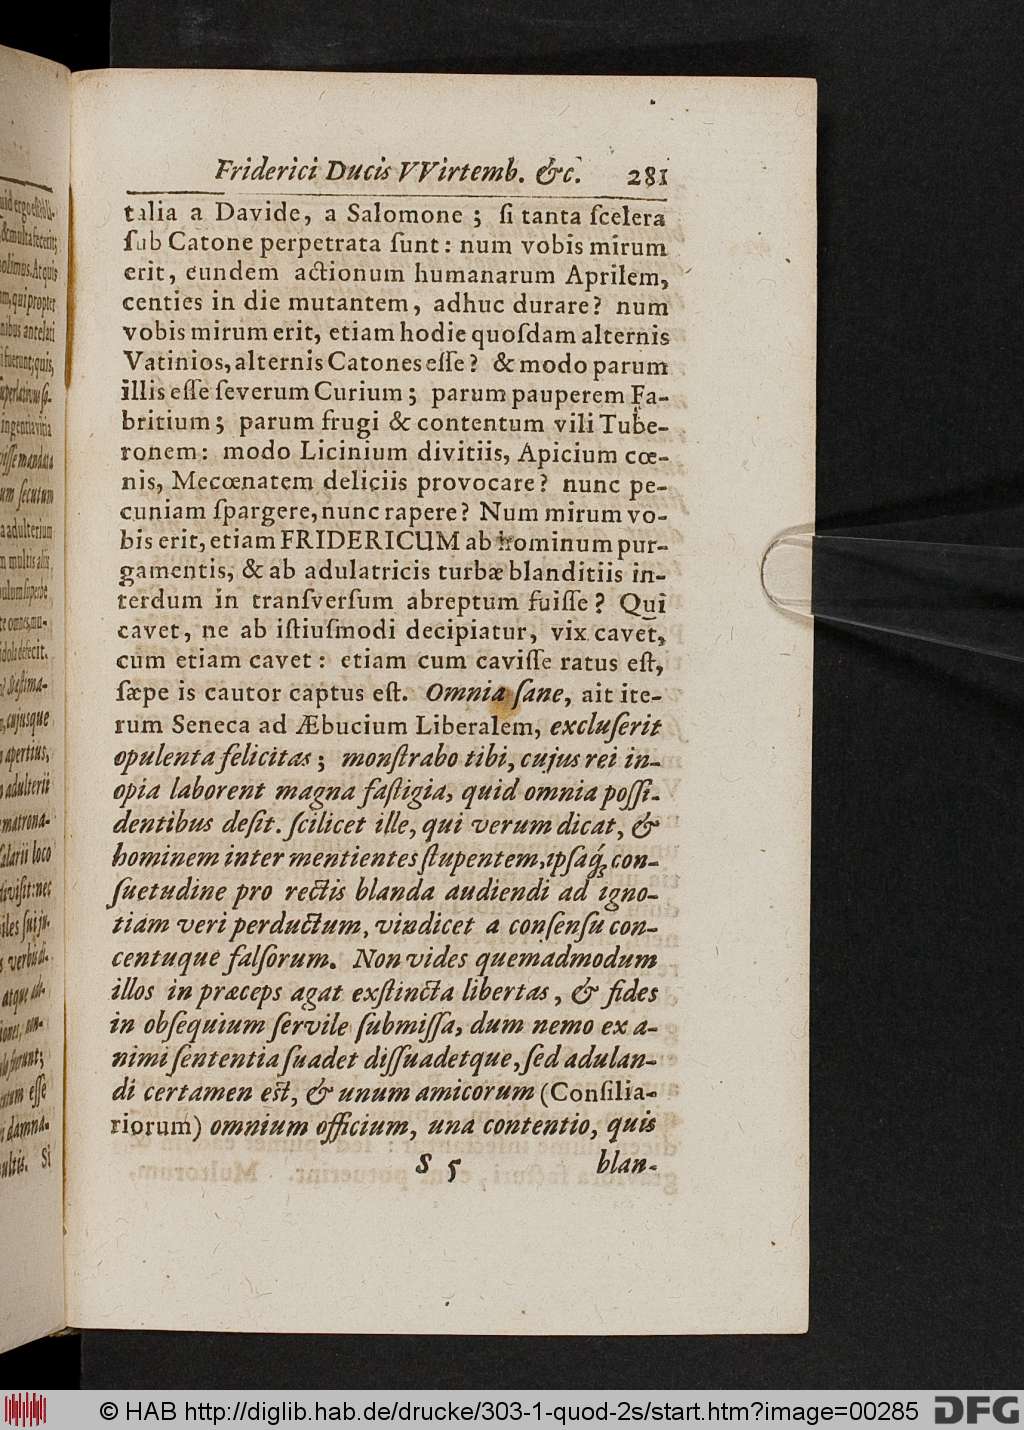 Friderici Ducis VVirtemb. &c. 281
talia a Davide, a Salomone ; ſi tanta ſcelera
ſub Catone perpetrata ſunt : num vobis mirum
erit, eundem actionum humanarum Aprilem,
centies in die mutantem, adhuc durare? num
vobis mirum erit, etiam hodie quoſdam alternis
Vatinios, alternis Catones eſſe? & modo parum
illis eſſe ſeverum Curium ; parum pauperem Fa-
britium ; parum frugi & contentum vili Tube-
ronem : modo Licinium divitiis, Apicium cœ-
nis, Mecœnatem deliciis provocare? nunc pe-
cuniam ſpargere, nunc rapere? Num mirum vo-
bis erit, etiam FRIDERICUM ab hominum pur-
gamentis, & ab adulatricis turbæ blanditiis in-
terdum in tranſverſum abreptum fuiſſe? Qui
cavet, ne ab iſtiuſmodi decipiatur, vix cavet,
cum etiam cavet : etiam cum caviſſe ratus eſt,
ſæpe is cautor captus eſt. Omnia ſane, ait ite-
rum Seneca ad Æbucium Liberalem, excluſerit
opulenta felicitas ; monſtrabo tibi, cujus rei in-
opia laborent magna faſtigia, quid omnia poſſi-
dentibus deſit. ſcilicet ille, qui verum dicat, &
hominem inter mentientes ſtupentem, ipſaq́; con-
ſuetudine pro rectis blanda audiendi ad igno-
tiam veri perductum, vindicet a conſenſu con-
centuque falſorum. Non vides quemadmodum
illos in præceps agat exſtincta libertas, & fides
in obſequium ſervile ſubmiſſa, dum nemo ex a-
nimi ſententia ſuadet diſſuadetque, ſed adulan-
di certamen eſt, & unum amicorum (Conſilia-
riorum) omnium officium, una contentio, quis
S 5 blan-
© HAB http://diglib.hab.de/drucke/303-1-quod-2s/start.htm?image=00285
DFG